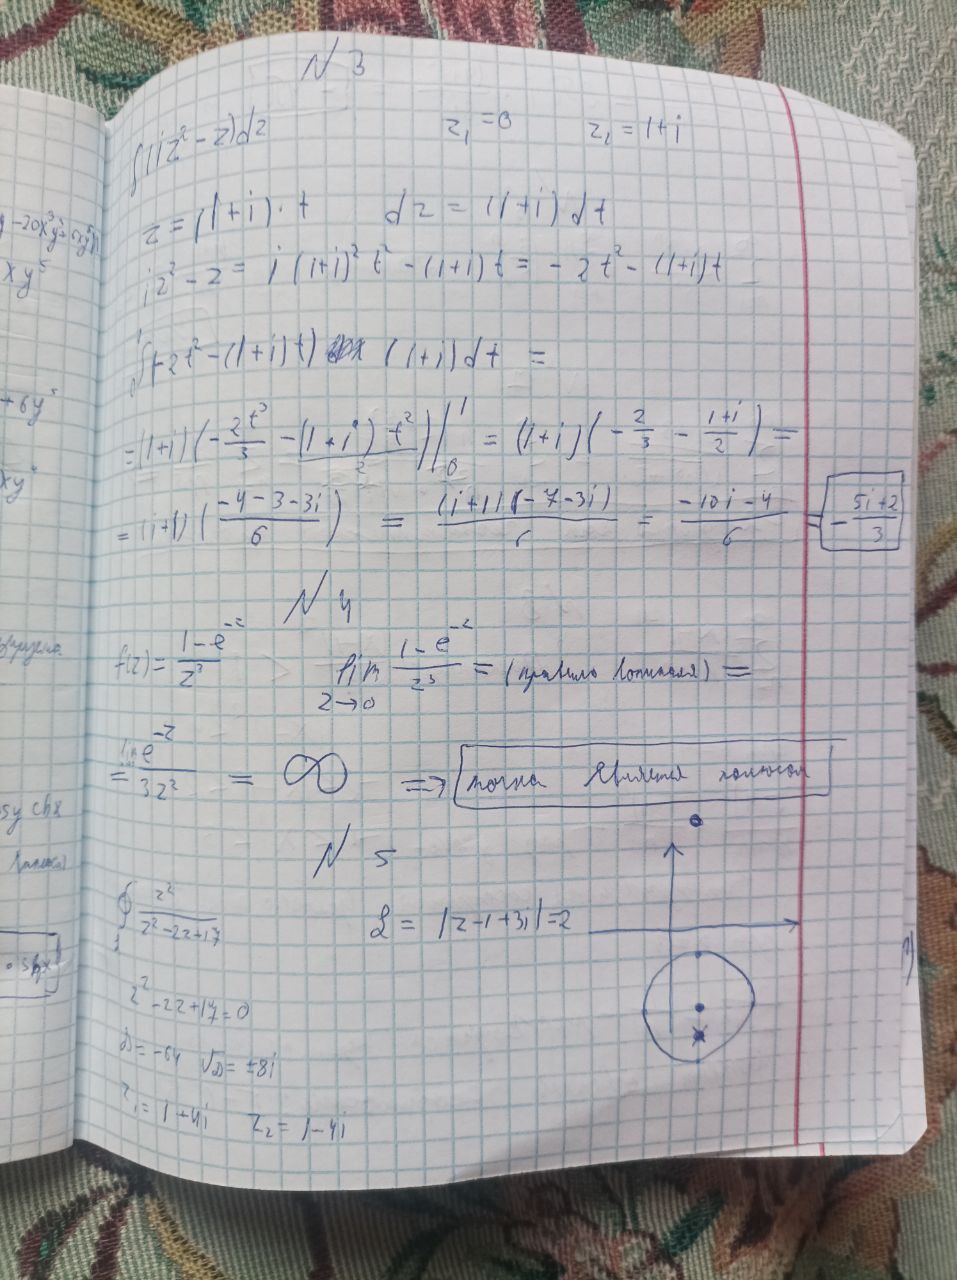 N 3
∫(iz² - z)dz z₁ = 0 z₂ = 1+i
z = (1+i)·t dz = (1+i)dt
iz² - z = i(1+i)²t² - (1+i)t = -2t² - (1+i)t
∫(-2t² - (1+i)t) (1+i)dt =
= (1+i)(-2t³/3 - (1+i)t²/2)|₀¹ = (1+i)(-2/3 - (1+i)/2) =
= (i+1)((-4-3-3i)/6) = (i+1)(-7-3i)/6 = (-10i-4)/6 = -(5i+2)/3
N 4
f(z) = (1-e^(-z))/z³ lim z→0 (1-e^(-z))/z³ = (правило Лопиталя) =
= lim e^(-z)/3z² = ∞ ⇒ точка является полюсом
N 5
∮ z²/(z²-2z+17) L = |z-1+3i|=2
z²-2z+17=0
D = -64 √D = ±8i
z₁ = 1+4i z₂ = 1-4i
xy⁵
+6y⁵
xy⁴